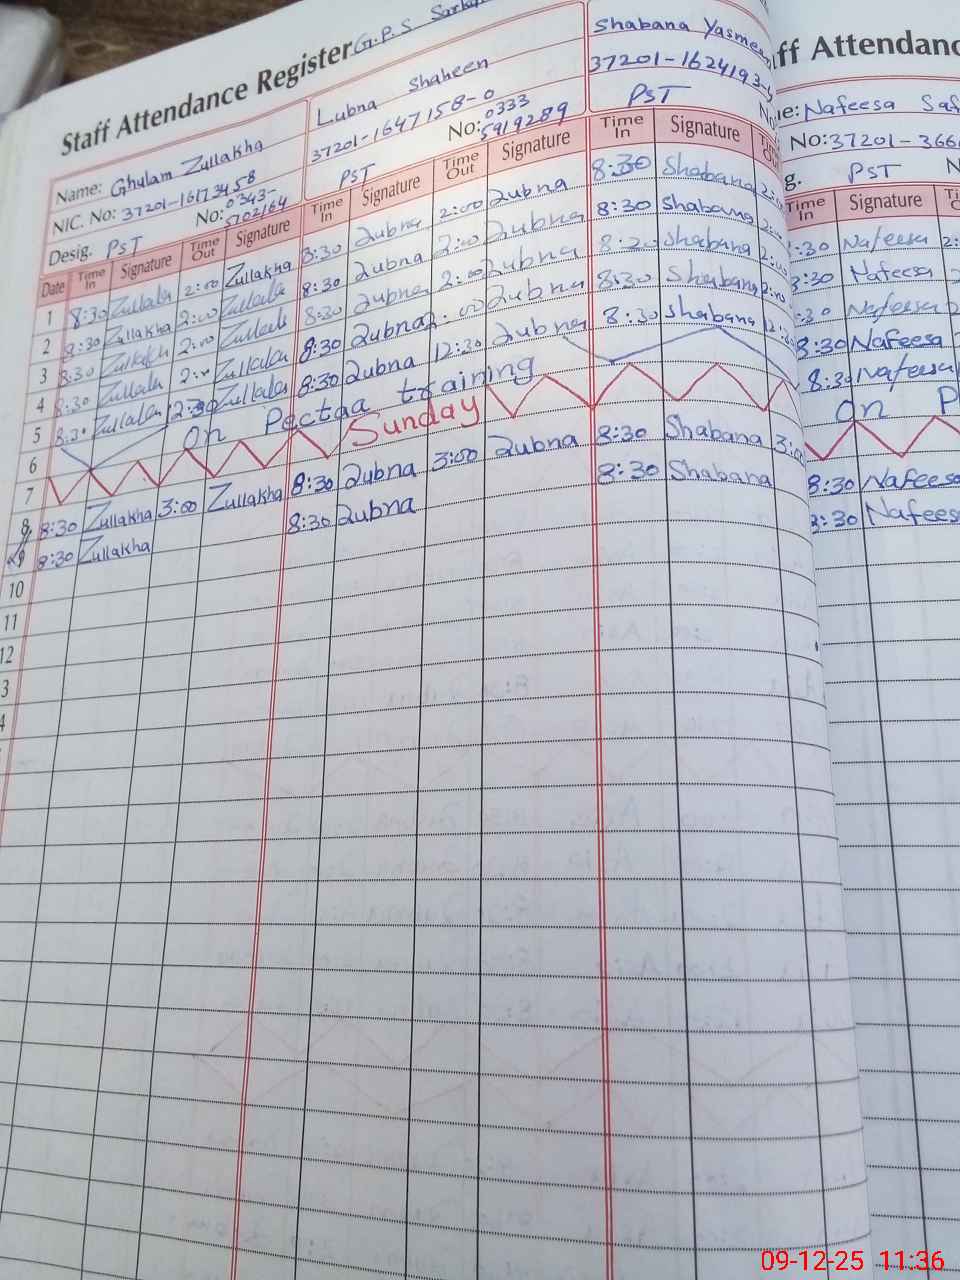 Staff Attendance Register G.P.S
Name: Ghulam Zullakha
NIC. No: 37201-1617345-8
No: 0343-
5702164
Desig. PST
Lubna Shaheen
37201-1647158-0
No: 0333
5919289
PST
Shabana Yasmeen
37201-1624193-
PST
Date Time In Signature Time Out Signature Time In Signature Time Out Signature Time In Signature Time Out
1 8:30 Zullakha 2:00 Zullakha 8:30 Lubna 2:00 Lubna 8:30 Shabana 2:00
2 8:30 Zullakha 2:00 Zullakha 8:30 Lubna 2:00 Lubna 8:30 Shabana 2:00
3 8:30 Zullakha 2:00 Zullakha 8:30 Lubna 2:00 Lubna 8:30 Shabana 2:00
4 8:30 Zullakha 2:00 Zullakha 8:30 Lubna 2:00 Lubna 8:30 Shabana 2:00
5 8:30 Zullakha 12:30 Zullakha 8:30 Lubna 12:30 Lubna 8:30 Shabana 12:
6 On Pectaa training
7 Sunday
8 8:30 Zullakha 3:00 Zullakha 8:30 Lubna 3:00 Lubna 8:30 Shabana 3:00
9 8:30 Zullakha 8:30 Lubna 8:30 Shabana
10
11
12
3
4
ff Attendanc
e: Nafeesa Saf
No: 37201-366
g. PST N
Time In Signature
:30 Nafeesa 2:
8:30 Nafeesa
:30 Nafeesa
8:30 Nafeesa
8:30 Nafeesa
On P
8:30 Nafeesa
8:30 Nafees
09-12-25 11:36